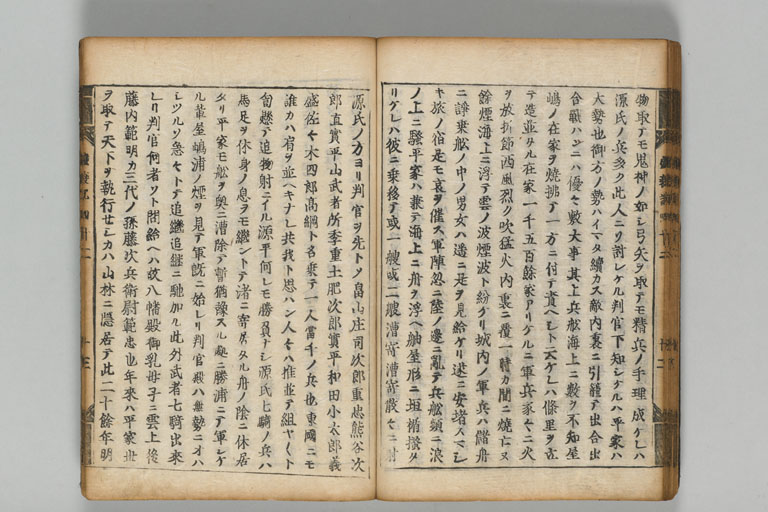 物取テモ鬼神ノ如シ弓矢ヲ取テモ精兵ノ手理成ケレハ
源氏ノ兵多ク此人ニ討レケル判官下知シケルハ平家ハ
大勢也御方ノ勢ハイマタ續カス敵内裏ニ引籠テ出合出
合戰ハンニハ優々敷大事其上兵舩海上ニ數ヲ不知屋
嶋ノ在家ヲ燒拂テ一方ニ付テ責ヘシト云ケレハ條里ヲ立
テ造並タル在家一千五百餘家アリケルニ軍兵家々ニ火
ヲ放折節西風烈ク吹猛火内裏ニ覆一時カ間ニ燒亡ス
餘煙海上ニ浮テ雲ノ波煙波ト紛ケリ城内ノ軍兵ハ儲舟
ニ諍乘舩ノ中ノ男女ハ遙ニ是ヲ見給ケリ遂ニ安堵スヘシ
キ旅ノ宿是モ哀ヲ催ス軍陣忽ニ陸ノ邊ニ亂テ兵舩頻ニ浪
ノ上ニ騒平家ハ兼テ海上ニ舟ヲ浮ヘ舳屋形ニ垣楯掻タ
リケレハ彼ニ乘移テ或一艘或二艘漕寄漕寄散々ニ射
源氏ノ方ヨリ判官ヲ先トシ畠山庄司次郎重忠熊谷次
郎直實平山武者所季重土肥次郎實平和田小太郎義
盛佐々木四郎高綱ト名乘テ一人當千ノ兵也東國ニモ
誰カハ肩ヲ並ヘキナレ共我ト思ハン人々ハ推並テ組ヤくト
匐懸テ追物射ニイル源平何レモ勝負ナシ源氏七騎ノ兵ハ
馬足ヲ休身ノ息ヲモ繼ントテ渚ニ寄居タル舟ノ陰ニ休居
タリ平家モ舩ヲ奥ニ漕除テ暫猶豫スル處ニ勝浦ニテ軍シケ
ル輩屋嶋浦ノ煙ヲ見テ軍既ニ始レリ判官殿ハ無勢ニオハ
シツルソ急ケトテ追繼追繼ニ馳加ル此外武者七騎出來
レリ判官何者ソト問給ヘハ故八幡殿御乳母子ニ雲上後
藤内範明カ三代ノ孫藤次兵衛尉範忠也年來ハ平家世
ヲ取テ天下ヲ執行セシカハ山林ニ隱居テ此二十餘年明